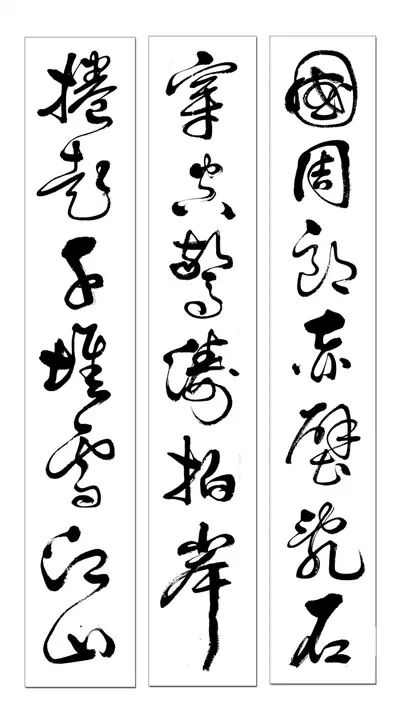 國周郎赤壁亂石
穿空驚濤拍岸
捲起千堆雪江山